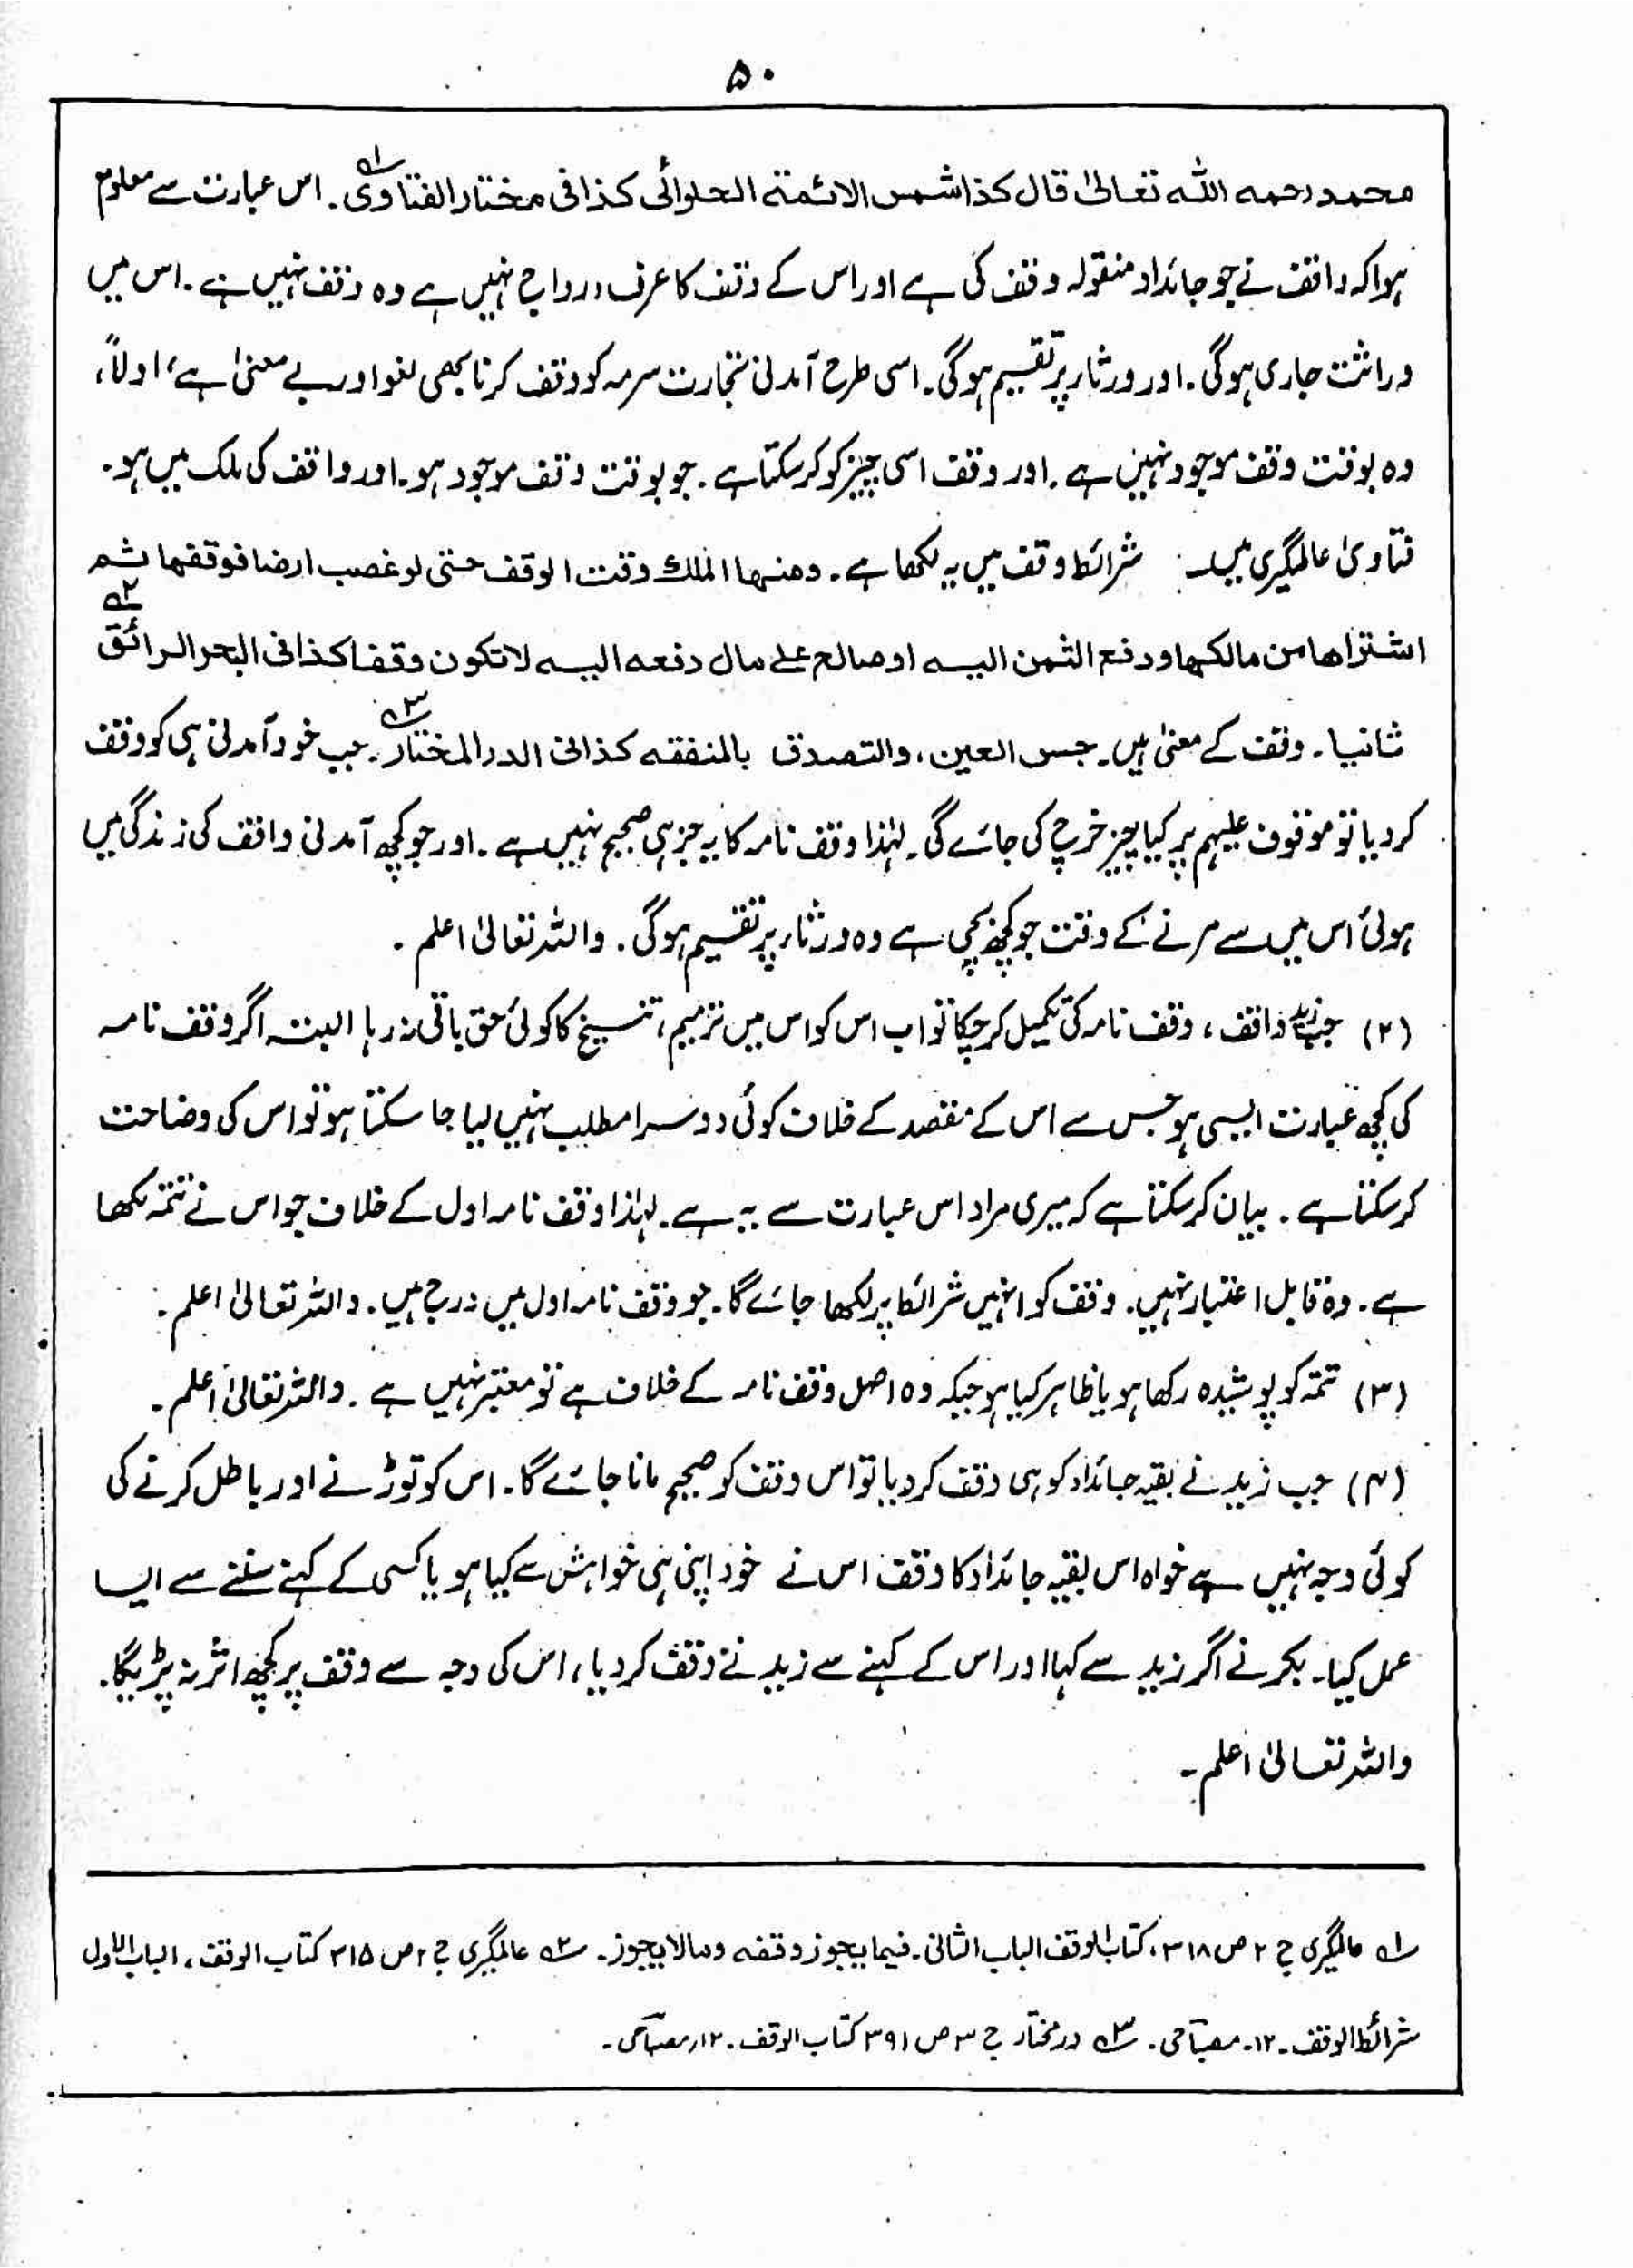 ۵۰
محمد رحمہ اللہ تعالیٰ قال کذا شمس الائمة الحلوائی کذا فی مختار الفتاوی۱ه. اس عبارت سے معلوم
ہوا کہ واقف نے جو جائداد منقولہ وقف کی ہے اور اس کے وقف کا عرف و رواج نہیں ہے وہ وقف نہیں ہے. اس میں
وراثت جاری ہوگی. اور ورثار پر تقسیم ہوگی. اسی طرح آمدنی تجارت سرمہ کو وقف کرنا بھی لغو اور بے معنیٰ ہے، اولاً،
وہ بوقت وقف موجود نہیں ہے. اور وقف اسی چیز کو کرسکتا ہے. جو بوقت وقف موجود ہو. اور واقف کی ملک میں ہو.
فتاویٰ عالمگیری میں شرائط وقف میں یہ لکھا ہے. ومنہا الملک وقت الوقف حتی لو غصب ارضا فوقفہا ثم
اشتراہا من مالکہا ودفع الثمن الیہ او صالح علی مال دفعہ الیہ لا تکون وقفا کذا فی البحر الرائق۲ه
ثانیا. وقف کے معنیٰ ہیں. حبس العین، والتصدق بالمنفقہ کذا فی الدر المختار۳ه. جب خود آمدنی ہی کو وقف
کردیا تو موقوف علیہم پر کیا چیز خرچ کی جائے گی. لہٰذا وقف نامہ کا یہ جز ہی صحیح نہیں ہے. اور جو کچھ آمدنی واقف کی زندگی میں
ہوئی اس میں سے مرنے کے وقت جو کچھ بچی ہے وہ ورثار پر تقسیم ہوگی. واللہ تعالیٰ اعلم.
(۲) جب زید واقف، وقف نامہ کی تکمیل کرچکا تو اب اس کو اس میں ترمیم، تنسیخ کا کوئی حق باقی نہ رہا البتہ اگر وقف نامہ
کی کچھ عبارت ایسی ہو جس سے اس کے مقصد کے خلاف کوئی دوسرا مطلب نہیں لیا جا سکتا ہو تو اس کی وضاحت
کرسکتا ہے. بیان کرسکتا ہے کہ میری مراد اس عبارت سے یہ ہے. لہٰذا وقف نامہ اول کے خلاف جو اس نے تتمہ لکھا
ہے. وہ قابل اعتبار نہیں. وقف کو انہیں شرائط پر لکھا جائے گا. جو وقف نامہ اول میں درج ہیں. واللہ تعالیٰ اعلم.
(۳) تتمہ کو پوشیدہ رکھا ہو یا ظاہر کیا ہو جبکہ وہ اصل وقف نامہ کے خلاف ہے تو معتبر نہیں ہے. واللہ تعالیٰ اعلم.
(۴) جب زید نے بقیہ جائداد کو ہی وقف کردیا تو اس وقف کو صحیح مانا جائے گا. اس کو توڑنے اور باطل کرنے کی
کوئی وجہ نہیں ہے خواہ اس بقیہ جائداد کا وقف اس نے خود اپنی ہی خواہش سے کیا ہو یا کسی کے کہنے سننے سے ایسا
عمل کیا. بکر نے اگر زید سے کہا اور اس کے کہنے سے زید نے وقف کردیا، اس کی وجہ سے وقف پر کچھ اثر نہ پڑیگا.
واللہ تعالیٰ اعلم.
۱ه عالمگیری ج ۲ ص ۳۱۸، کتاب الوقف الباب الثانی. فیما یجوز وقفہ ومالا یجوز. ۲ه عالمگیری ج ۲ ص ۳۱۵ کتاب الوقف، الباب الاول
شرائط الوقف. ۱۲. مصباحی. ۳ه در مختار ج ۳ ص ۳۹۱ کتاب الوقف. ۱۲ر مصباحی.